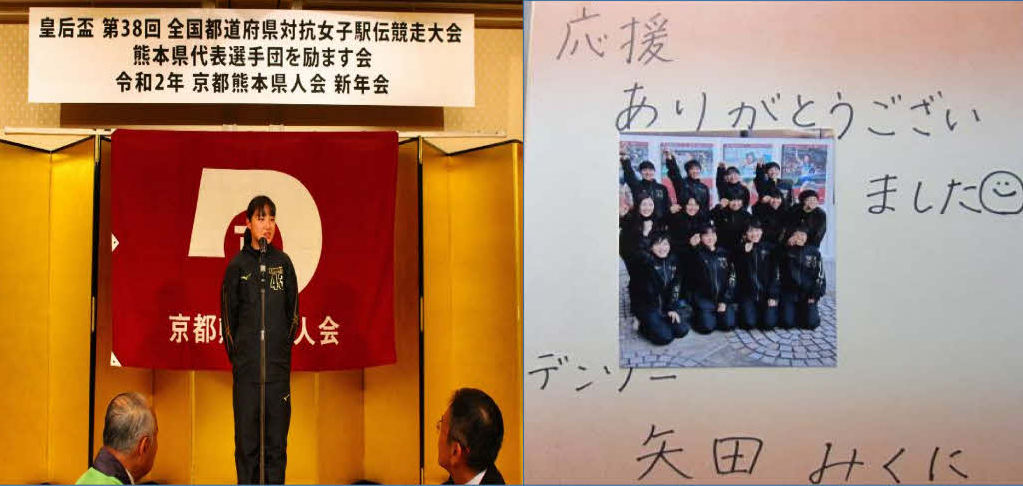 皇后盃 第38回 全国都道府県対抗女子駅伝競走大会
熊本県代表選手団を励ます会
令和2年 京都熊本県人会 新年会
京都熊 人会
応援
ありがとうござい
ました
デンソー
矢田 みくに